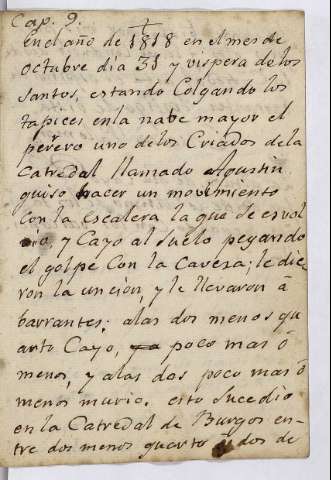 Cap. 9.
En el año de 1818 en el mes de
octubre dia 31 y vispera de los
santos, estando Colgando los
tapices en la nabe mayor el
perrero uno de los Criados de la
Catredal llamado Agustin
quiso hacer un movimiento
con la escalera la que desvol
vio, y Cayo al suelo pegando
el golpe Con la Caveza; le die
ron la uncion y le llevaron á
barrantes; alas dos menos qu
arto Cayo, poco mas ó
menos, y alas dos poco mas ó
menos murio. esto sucedio
en la Catredal de Burgos en-
tre dos menos quarto á dos de